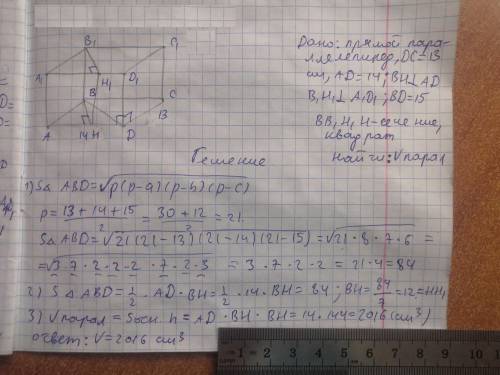 B₁ C₁
A₁ H₁ D₁
B C
13
A 14 H D
Дано: прямой пара-
ллелепипед, DC=13
см, AD=14; BH⊥AD
B₁H₁⊥A₁D₁; BD=15
BB₁H₁H-сечение,
квадрат
Найти: Vпарал
Решение
1) S△ ABD=√p(p-a)(p-b)(p-c)
p= 13+14+15/2 = 30+12/2 = 21
S△ ABD=√21(21-13)(21-14)(21-15)=√21·8·7·6 =
=√3·7·2·2·2·7·2·3 = 3·7·2·2=21·4=84
2) S△ABD=1/2·AD·BH=1/2·14·BH=84; BH=84/7=12=HH₁
3) Vпарал=Sосн.h=AD·BH·BH=14·144=2016(см³)
ответ: V=2016 см³
1 2 3 4 5 6 7 8 9 10